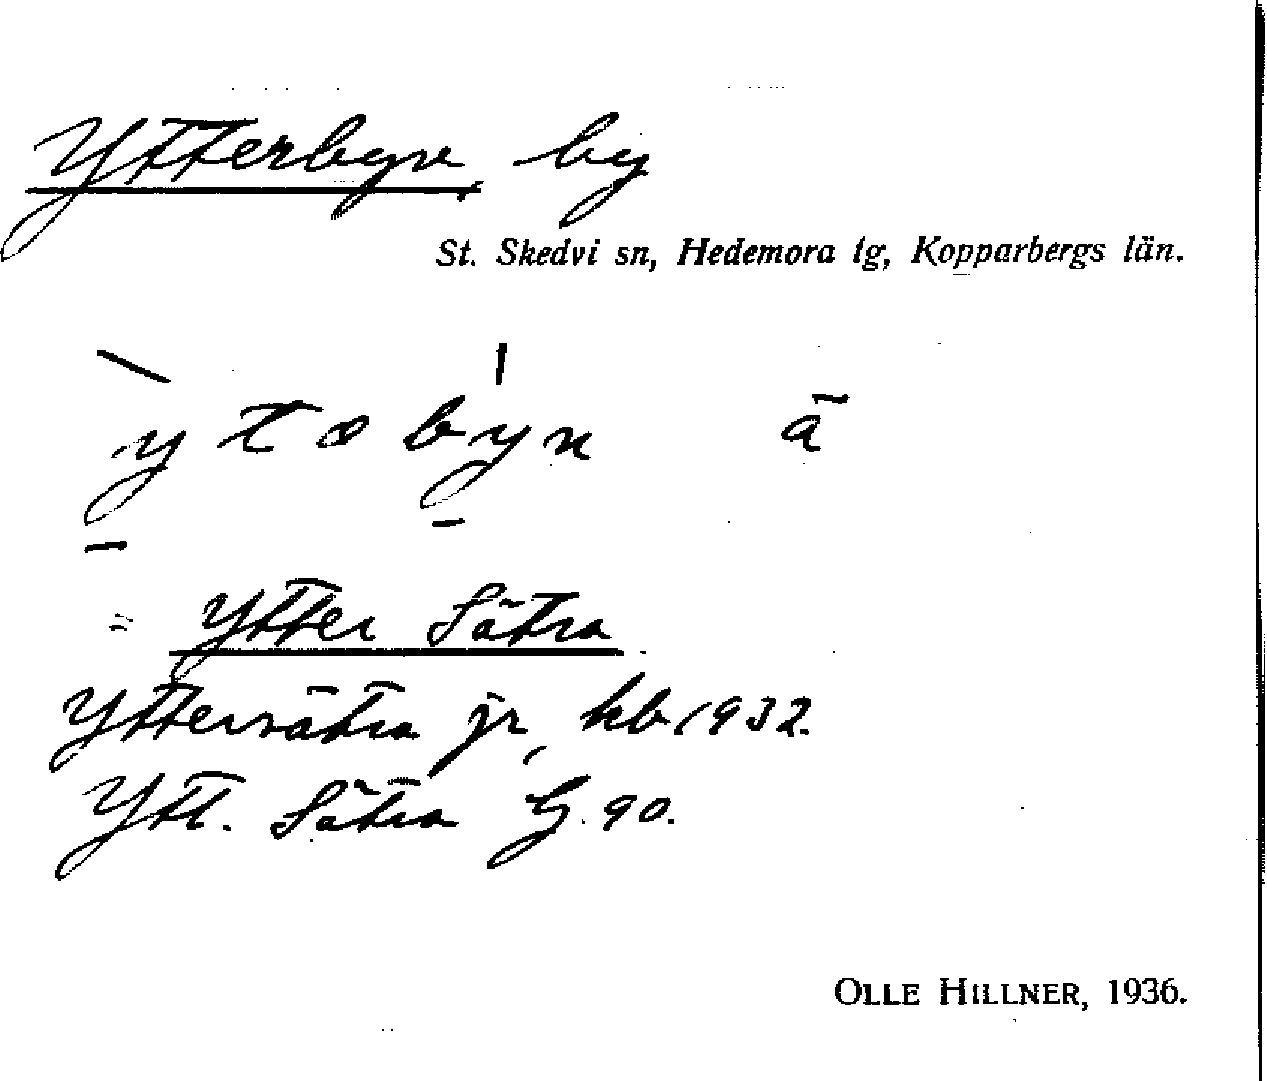 Ytterbyn by
St. Skedvi sn, Hedemora tg, Kopparbergs län.
= Ytter Sätra
Yttersätra jr, kb 1932.
Ytt. Sätra G. 90.
OLLE HILLNER, 1936.